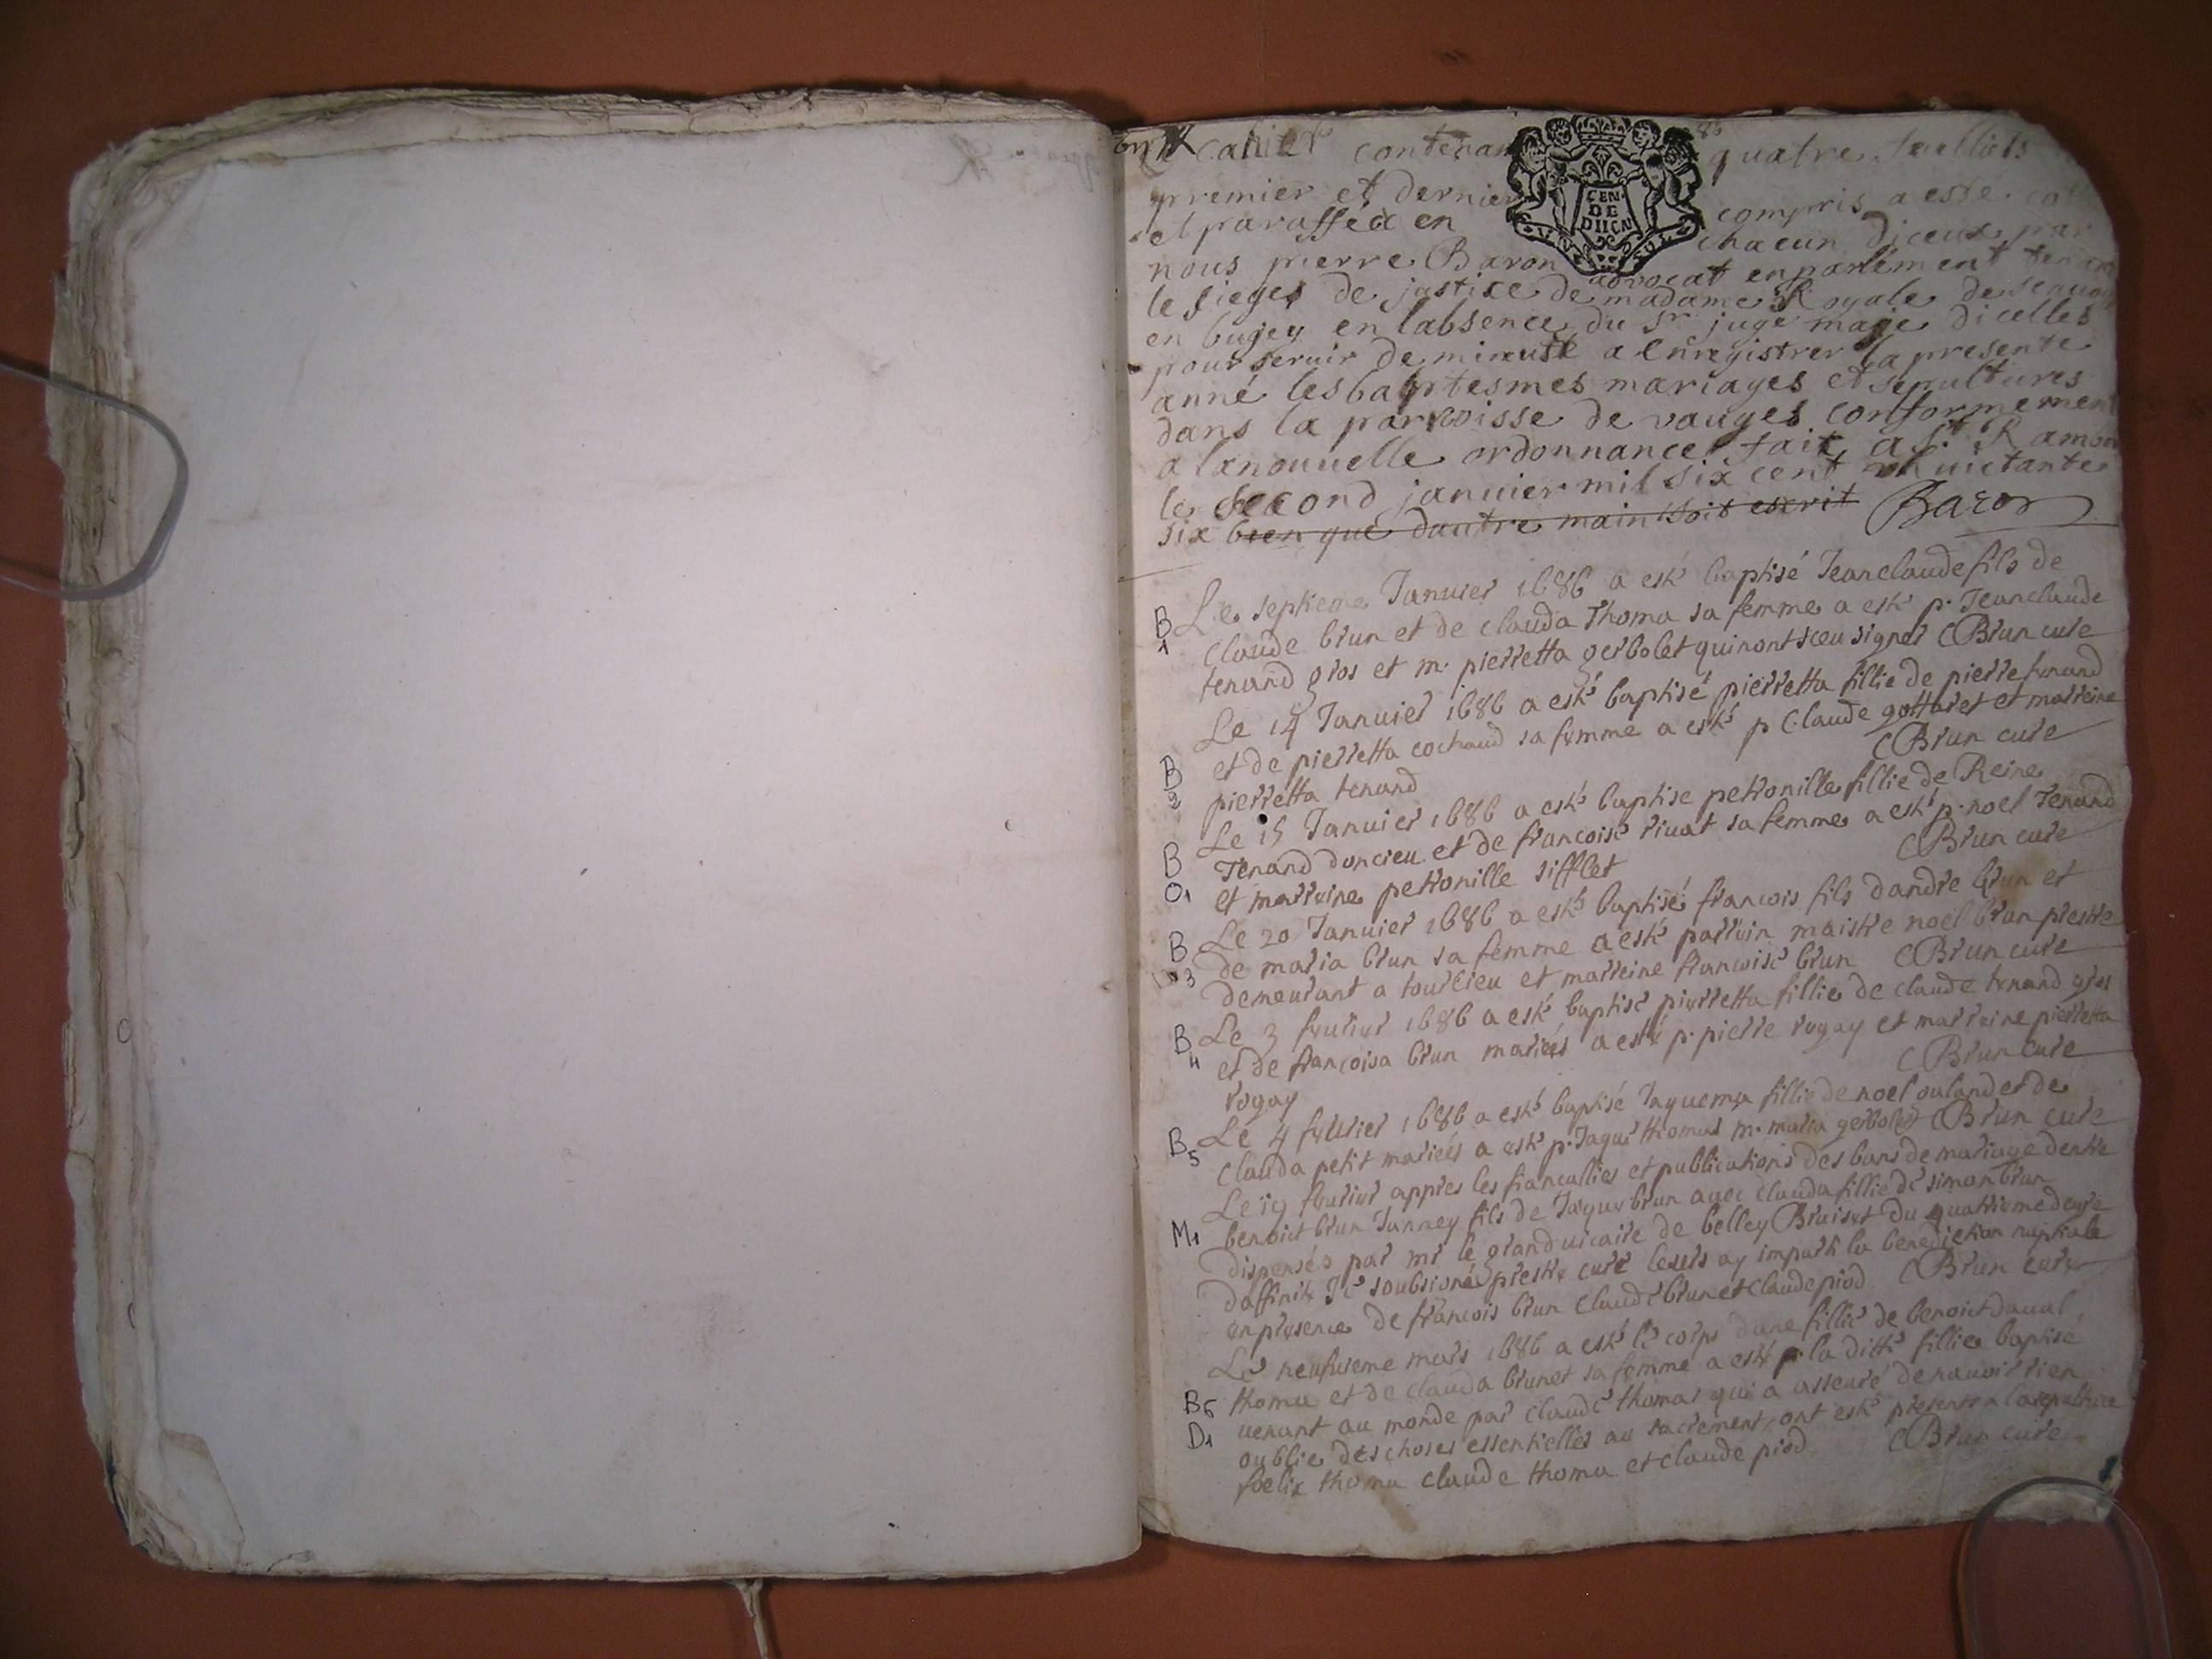 cahier contenant quatre feulliets
premier et dernier compris a esté
et paraffeé en chacun diceux par
nous pierre Baron advocat en parlement
le sieges de justice de madame Royale
en bugey en labsence du Sr juge maje dicelles
pour servir de minutte a Enregistrer la presente
anné les baptesmes mariages et sepultures
dans la parroisse de vauges conformement
a la nouuelle ordonnance fait a St Rambert
le second januier mil six cent huictante
six bien que dautre main soit escrit Baron
GEN DE DIION
B 1 Le septieme Januier 1686 a esté baptisé Jeanclaude fils de
Claude brun et de clauda Thoma sa femme a esté p. Jeanclaude
tenand gros et m. pierretta gerbolet qui nont sceu signer C Brun cure
Le 14 Januier 1686 a esté baptisé pierretta fillie de pierre tenand
B 2 et de pierretta cochaud sa femme a esté p Claude gottaret et marreine
pierretta tenand C Brun cure
Le 15 Januier 1686 a esté baptise petronille fillie de Reine
B Tenand doncieu et de francoise riuat sa femme a esté p. noel Tenand
O1 et marreine petronille sifflet C Brun cure
B Le 20 Januier 1686 a esté baptisé francois fils dandre brun et
3 de maria brun sa femme a esté parrein maistre noel brun prestre
demeurant a tourcieu et marreine francoise brun C Brun cure
B 4 Le 3 feurier 1686 a esté baptisé pierretta fillie de claude tenand gros
et de francoisa brun mariés a esté p. pierre rogay et marreine pierretta
rogay C Brun cure
B 5 Le 4 feurier 1686 a esté baptisé Jaquema fillie de noel ouland et de
Clauda petit mariés a esté p. Jaque thomas m. maria gerbolet C Brun cure
Le 19 feurier appres les fiancallies et publications des bans de mariage dentre
M1 benoict brun Janney fils de Jaque brun auec clauda fillie de simon brun
dispensés par mr le grand uicaire de belley Bruiset du quatrieme degré
daffinité Je soubsigné prestre curé leurs ay imparti la benediction nuptiale
en presence de francois brun Claude brun et claude piod C Brun cure
Le neufuieme mars 1686 a esté le corps dune fillie de benoict daual
B6 thoma et de clauda brunet sa femme a esté p. la ditte fillie baptisé
D1 uenant au monde par claude thomas qui a asseuré de nauoir rien
oublie des choses essentielles au sacrement, ont esté presents a la sepulture
foelix thoma claude thoma et claude piod C Brun cure